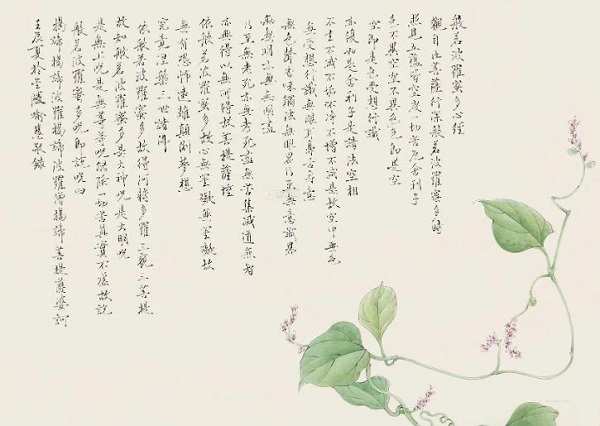 般若波羅蜜多心經
觀自在菩薩行深般若波羅蜜多時
照見五蘊皆空度一切苦厄舍利子
色不異空空不異色色即是空
空即是色受想行識
亦復如是舍利子是諸法空相
不生不滅不垢不淨不增不減是故空中無色
無受想行識無眼耳鼻舌身意
無色聲香味觸法無眼界乃至無意識界
無無明亦無無明盡
乃至無老死亦無老死盡無苦集滅道無智
亦無得以無所得故菩提薩埵
依般若波羅蜜多故心無罣礙無罣礙故
無有恐怖遠離顛倒夢想
究竟涅槃三世諸佛
依般若波羅蜜多故得阿耨多羅三藐三菩提
故知般若波羅蜜多是大神咒是大明咒
是無上咒是無等等咒能除一切苦真實不虛故說
般若波羅蜜多咒即說咒曰
揭諦揭諦波羅揭諦波羅僧揭諦菩提薩婆訶
壬辰夏於金陵喻慧敬錄